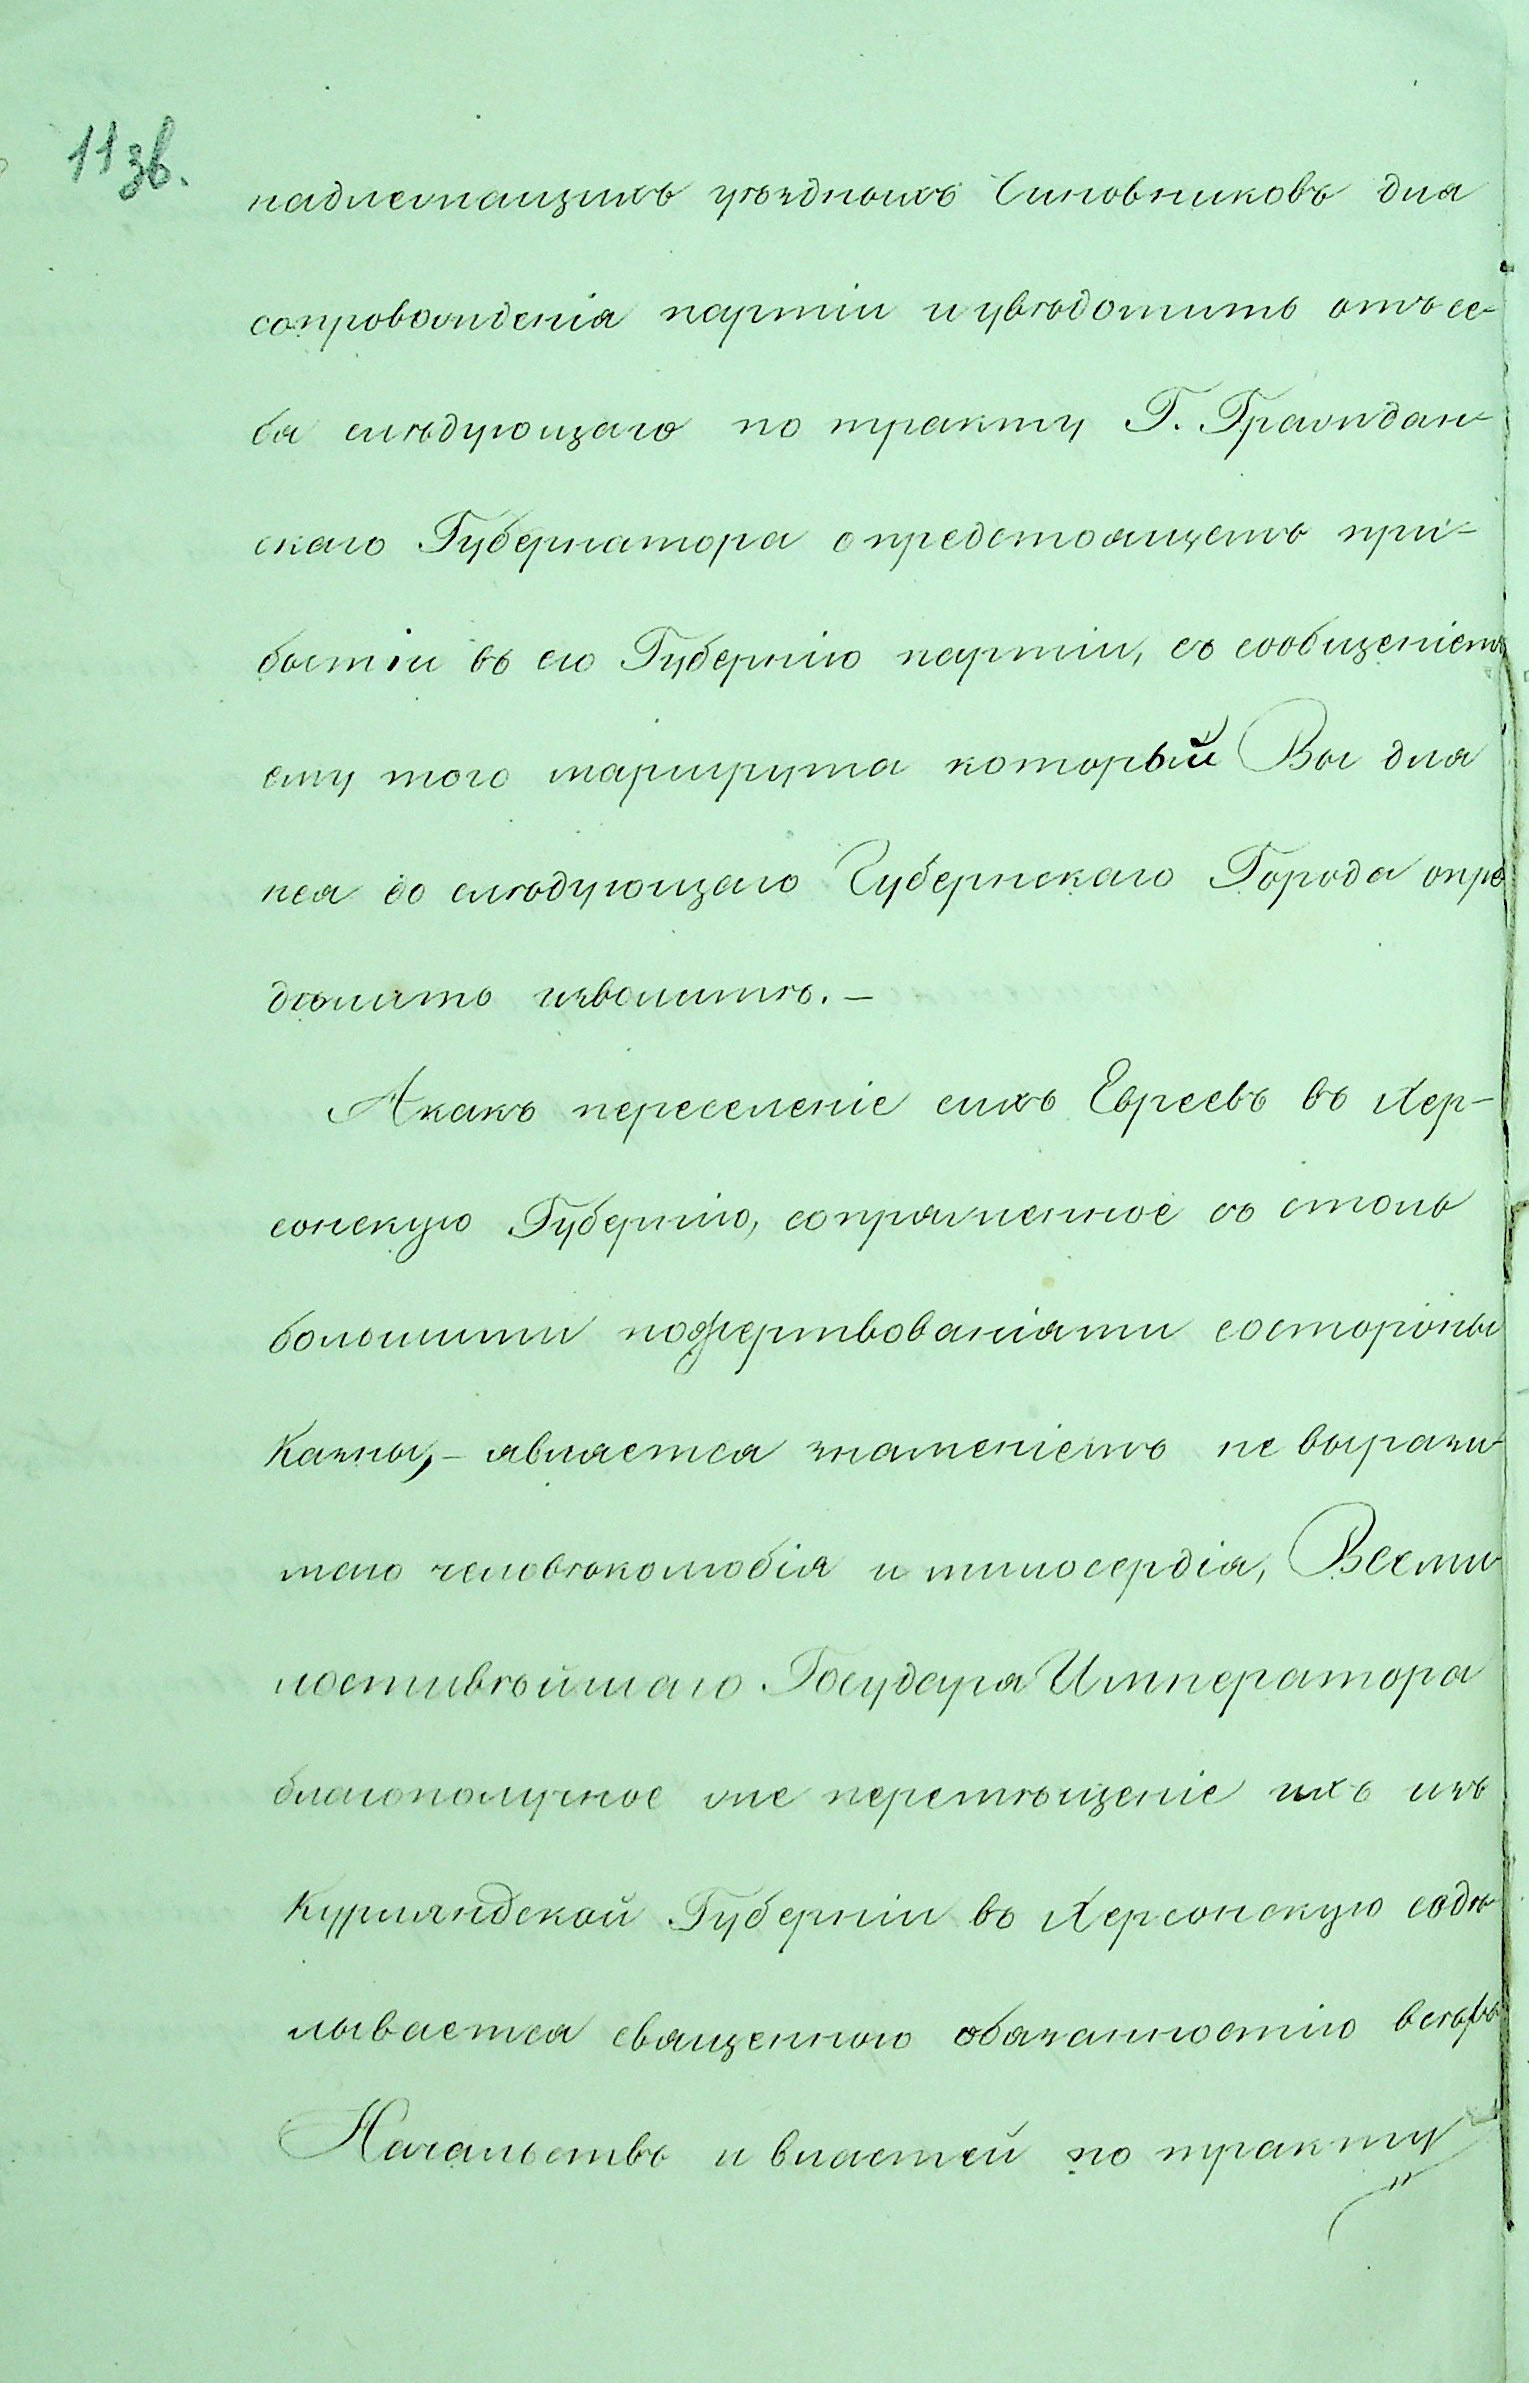 11зв.
надлежащихъ уѣздныхъ Чиновниковъ для
сопровожденія партіи и увѣдомить отъ се-
бя слѣдующаго по тракту Г. Граждан-
скаго Губернатора о предстоящемъ при-
бытіи въ его Губернію партіи, съ сообщеніемъ
ему того маршрута который Вы для
нея до слѣдующаго Губернскаго Города опре
дѣлить изволите.—
А какъ переселеніе сихъ Евреевъ въ Хер-
сонскую Губернію, сопряженное съ столь
большими пожертвованіями со стороны
Казны,— является знаменіемъ не вырази-
маго человѣколюбія и милосердія, Всеми-
лостивѣйшаго Государя Императора
благополучное же перемѣщеніе ихъ изъ
Курляндской Губерніи въ Херсонскую содѣ-
лывается священною обязанностію всѣхъ
Начальствъ и властей по тракту